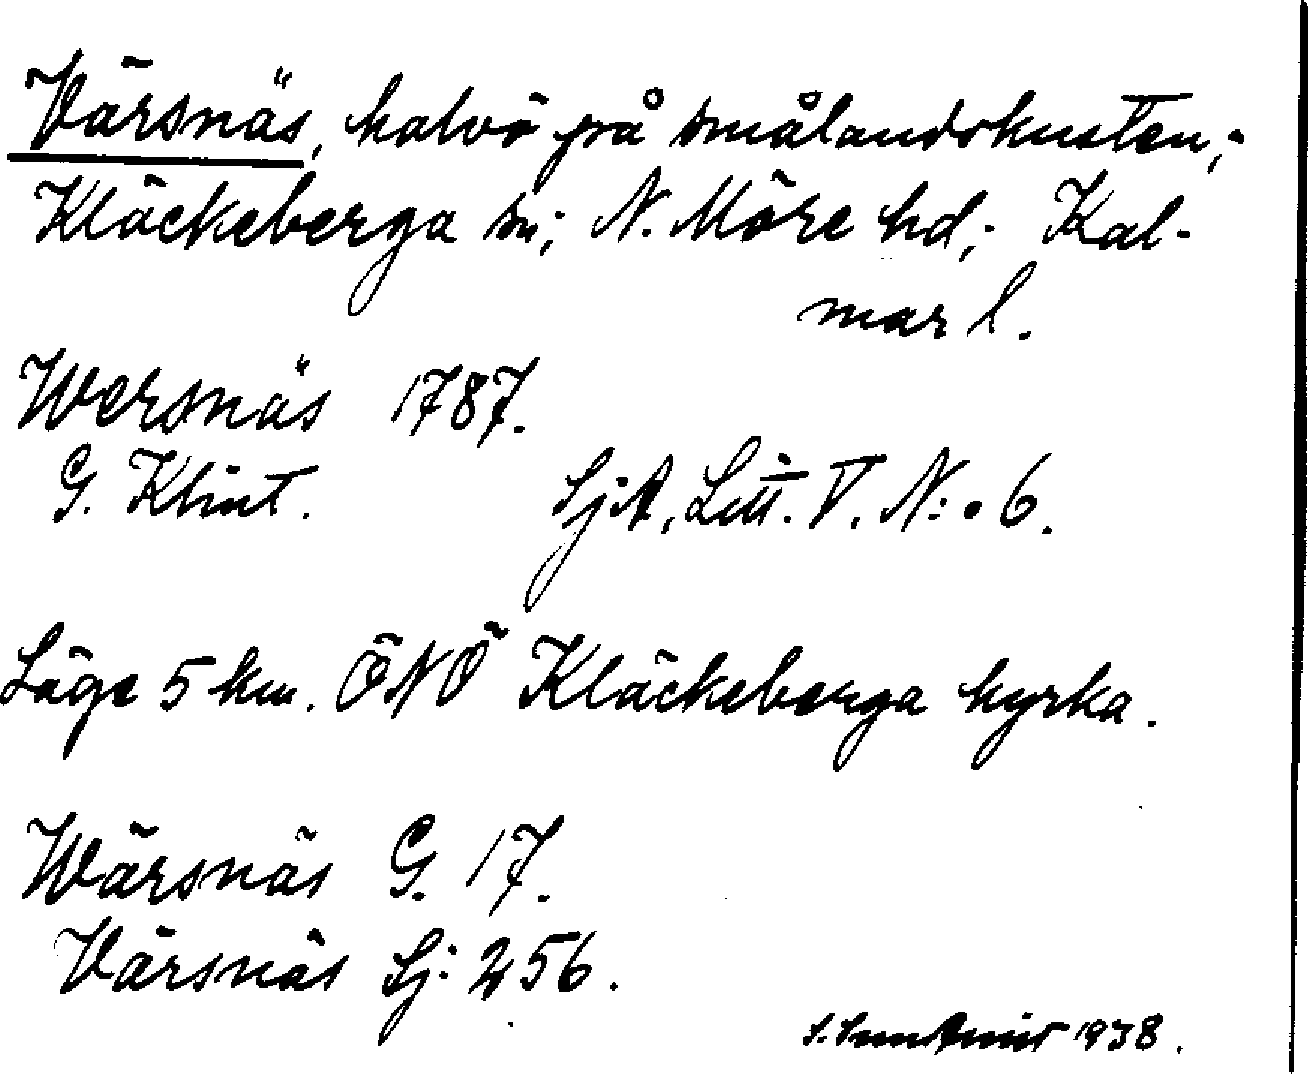 Värsnäs, halvö på smålandskusten,;
Kläckeberga sn; N. Möre hd,; Kal-
mar l.
Wersnäs 1787.
G. Klint. SjA, Litt. V. N:o 6.
Läge 5 km. ÖNÖ Kläckeberga kyrka.
Wärsnäs G. 17.
Värsnäs Sj: 256.
S. 1938.